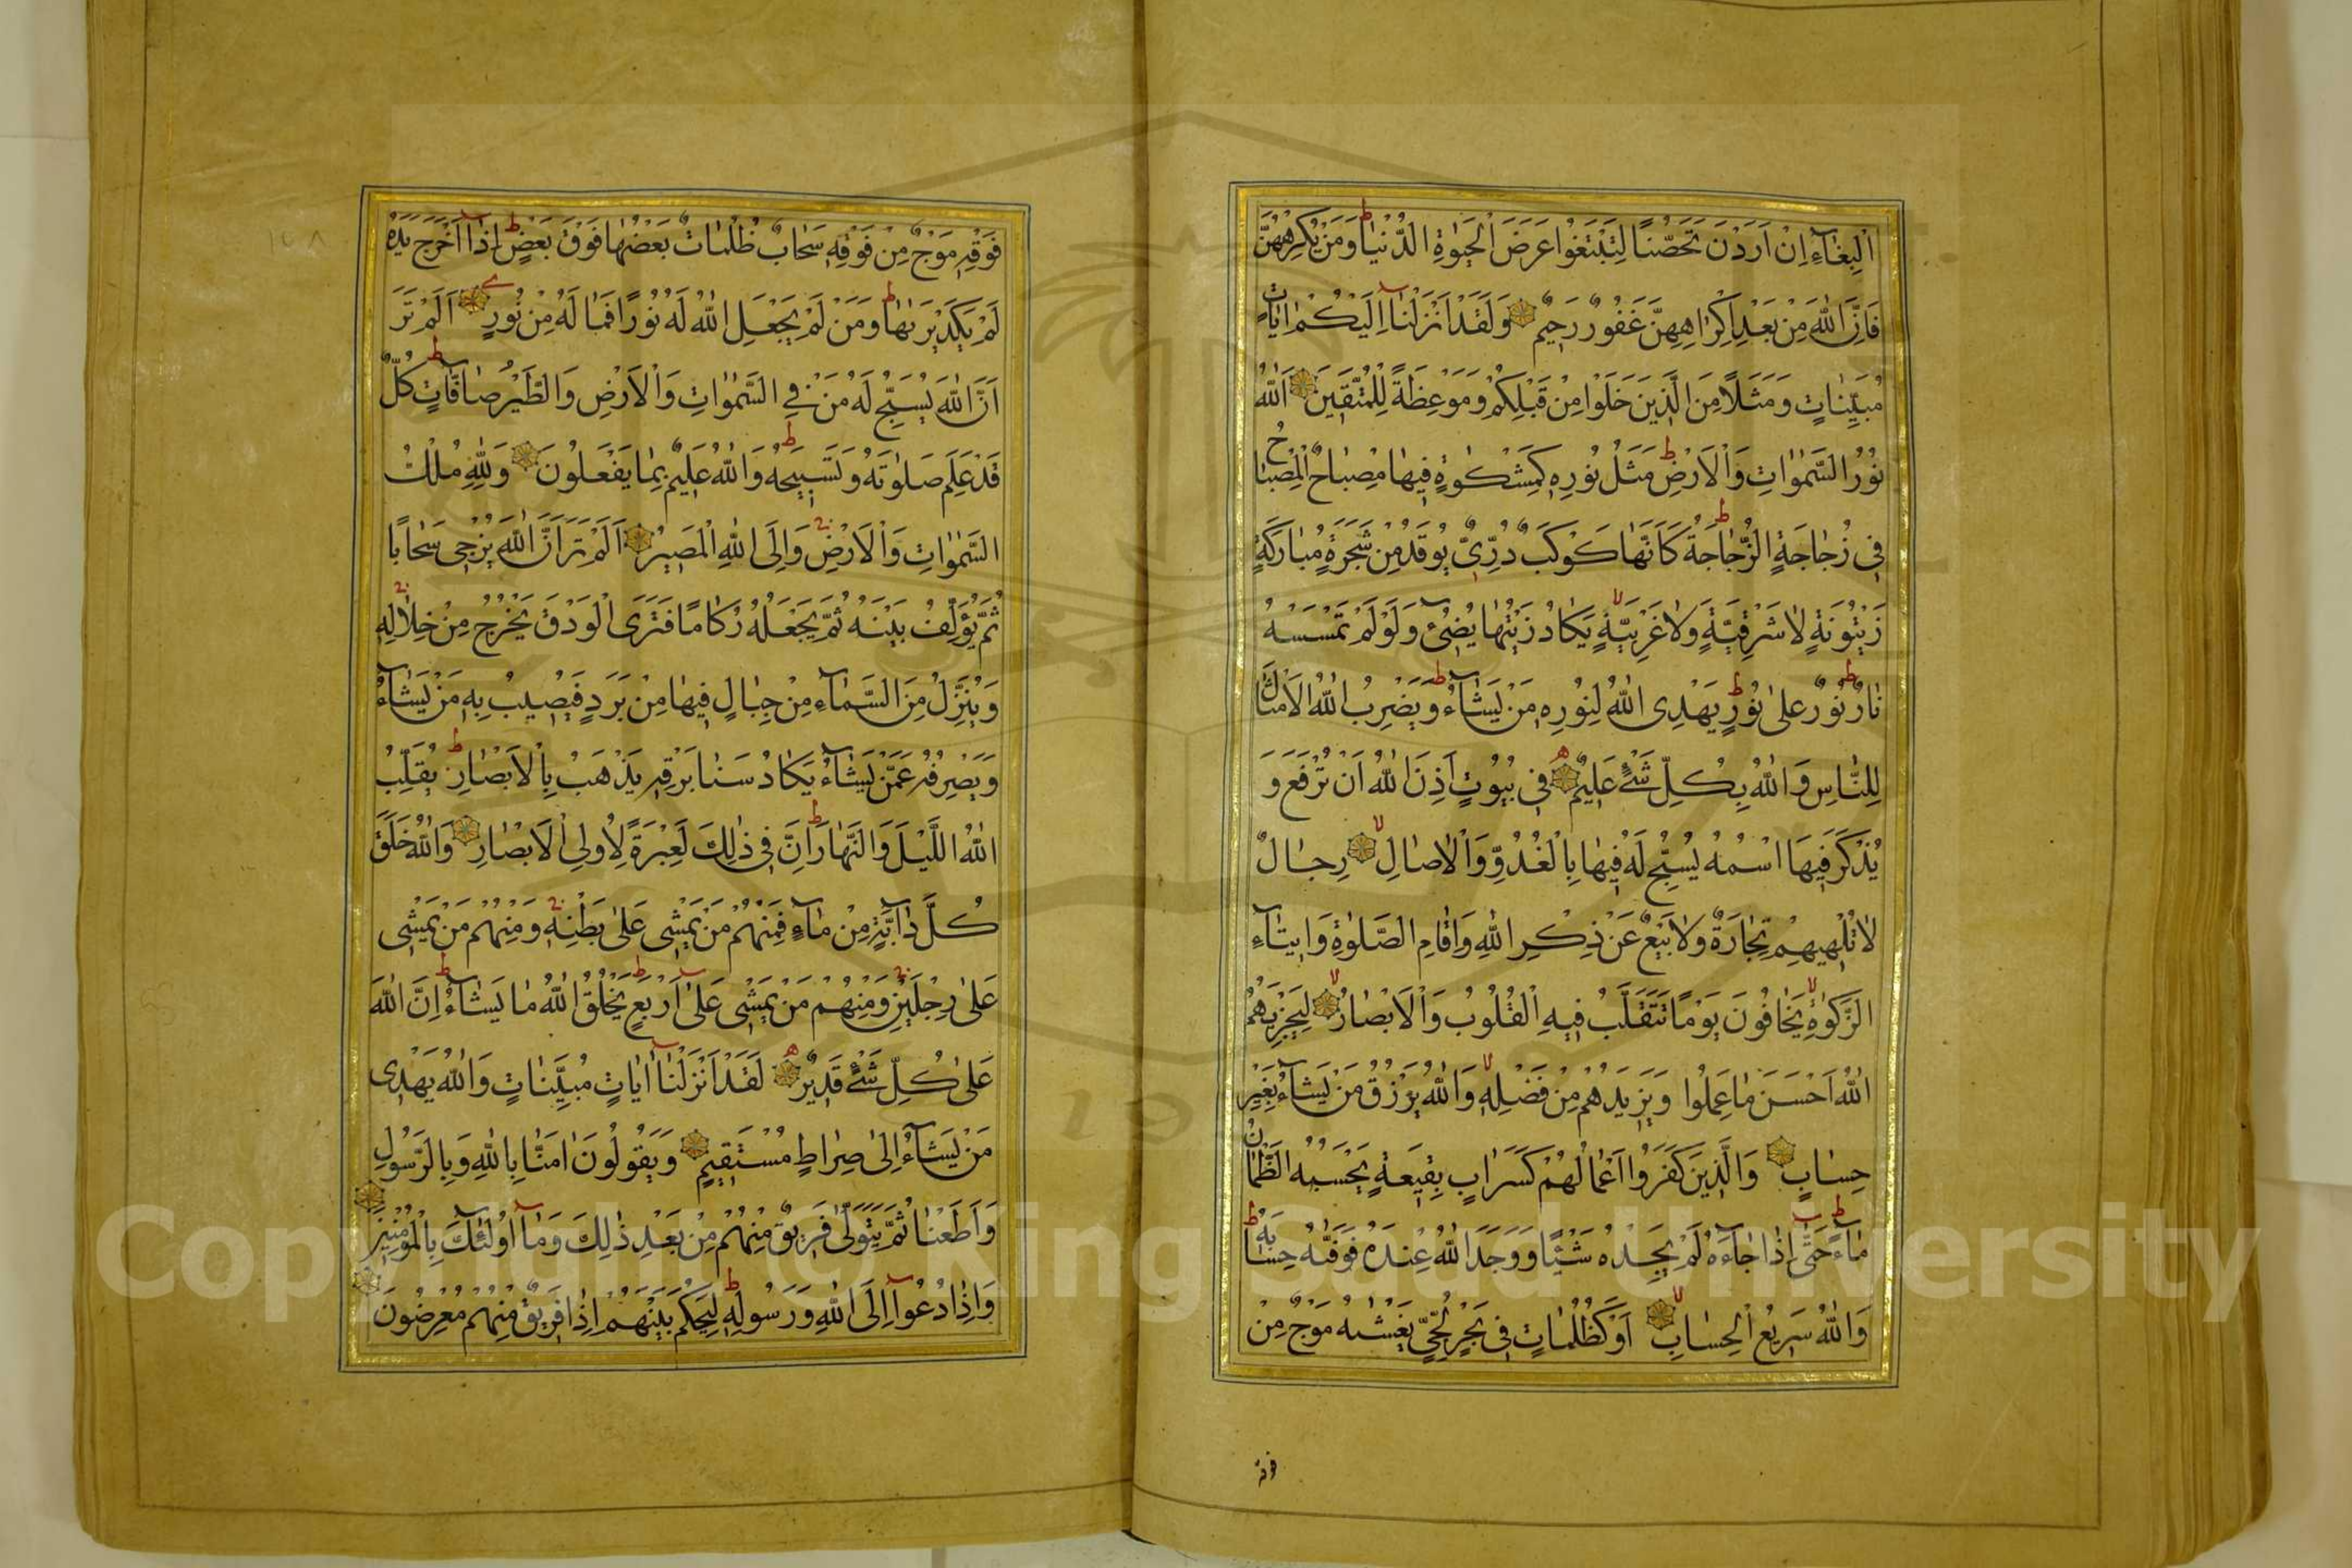 اَلْبِغَآءِ اِنْ اَرَدْنَ تَحَصُّنًا لِتَبْتَغُوا عَرَضَ الْحَيٰوةِ الدُّنْيَا ط وَمَنْ يُكْرِهْهُنَّ
فَاِنَّ اللّٰهَ مِنْ بَعْدِ اِكْرَاهِهِنَّ غَفُورٌ رَحِيمٌ وَلَقَدْ اَنْزَلْنَا اِلَيْكُمْ اٰيَاتٍ
مُبَيِّنَاتٍ وَمَثَلًا مِنَ الَّذِينَ خَلَوْا مِنْ قَبْلِكُمْ وَمَوْعِظَةً لِلْمُتَّقِينَ اَللّٰهُ
نُورُ السَّمٰوَاتِ وَالْاَرْضِ ط مَثَلُ نُورِهِ كَمِشْكٰوةٍ فِيهَا مِصْبَاحٌ الْمِصْبَاحُ
فِي زُجَاجَةٍ الزُّجَاجَةُ ط كَاَنَّهَا كَوْكَبٌ دُرِّيٌّ يُوقَدُ مِنْ شَجَرَةٍ مُبَارَكَةٍ
زَيْتُونَةٍ لَا شَرْقِيَّةٍ وَلَا غَرْبِيَّةٍ لا يَكَادُ زَيْتُهَا يُضِيۤئُ وَلَوْ لَمْ تَمْسَسْهُ
نَارٌ ط نُورٌ عَلٰى نُورٍ ط يَهْدِى اللّٰهُ لِنُورِهِ مَنْ يَشَآءُ ط وَيَضْرِبُ اللّٰهُ الْاَمْثَالَ
لِلنَّاسِ وَاللّٰهُ بِكُلِّ شَيْءٍ عَلِيمٌ ه فِي بُيُوتٍ اَذِنَ اللّٰهُ اَنْ تُرْفَعَ وَ
يُذْكَرَ فِيهَا اسْمُهُ يُسَبِّحُ لَهُ فِيهَا بِالْغُدُوِّ وَالْاٰصَالِ لا رِجَالٌ
لَا تُلْهِيهِمْ تِجَارَةٌ وَلَا بَيْعٌ عَنْ ذِكْرِ اللّٰهِ وَاِقَامِ الصَّلٰوةِ وَاِيتَآءِ
الزَّكٰوةِ لا يَخَافُونَ يَوْمًا تَتَقَلَّبُ فِيهِ الْقُلُوبُ وَالْاَبْصَارُ لا لِيَجْزِيَهُمُ
اللّٰهُ اَحْسَنَ مَا عَمِلُوا وَيَزِيدَهُمْ مِنْ فَضْلِهِ لا وَاللّٰهُ يَرْزُقُ مَنْ يَشَآءُ بِغَيْرِ
حِسَابٍ وَالَّذِينَ كَفَرُوا اَعْمَالُهُمْ كَسَرَابٍ بِقِيعَةٍ يَحْسَبُهُ الظَّمْاٰنُ
مَآءً ط حَتّٰى اِذَا جَآءَهُ لَمْ يَجِدْهُ شَيْئًا وَوَجَدَ اللّٰهَ عِنْدَهُ فَوَفّٰيهُ حِسَابَهُ ط
وَاللّٰهُ سَرِيعُ الْحِسَابِ لا اَوْ كَظُلُمَاتٍ فِي بَحْرٍ لُجِّيٍّ يَغْشٰيهُ مَوْجٌ مِنْ
فوقه
فَوْقِهِ مَوْجٌ مِنْ فَوْقِهِ سَحَابٌ ظُلُمَاتٌ بَعْضُهَا فَوْقَ بَعْضٍ ط اِذَا اَخْرَجَ يَدَهُ
لَمْ يَكَدْ يَرٰيهَا ط وَمَنْ لَمْ يَجْعَلِ اللّٰهُ لَهُ نُورًا فَمَا لَهُ مِنْ نُورٍ اَلَمْ تَرَ
اَنَّ اللّٰهَ يُسَبِّحُ لَهُ مَنْ فِي السَّمٰوَاتِ وَالْاَرْضِ وَالطَّيْرُ صَآفَّاتٍ ط كُلٌّ
قَدْ عَلِمَ صَلٰوتَهُ وَتَسْبِيحَهُ ط وَاللّٰهُ عَلِيمٌ بِمَا يَفْعَلُونَ وَلِلّٰهِ مُلْكُ
السَّمٰوَاتِ وَالْاَرْضِ وَاِلَى اللّٰهِ الْمَصِيرُ اَلَمْ تَرَ اَنَّ اللّٰهَ يُزْجِي سَحَابًا
ثُمَّ يُؤَلِّفُ بَيْنَهُ ثُمَّ يَجْعَلُهُ رُكَامًا فَتَرَى الْوَدْقَ يَخْرُجُ مِنْ خِلَالِهِ
وَيُنَزِّلُ مِنَ السَّمَآءِ مِنْ جِبَالٍ فِيهَا مِنْ بَرَدٍ فَيُصِيبُ بِهِ مَنْ يَشَآءُ
وَيَصْرِفُهُ عَمَّنْ يَشَآءُ يَكَادُ سَنَا بَرْقِهِ يَذْهَبُ بِالْاَبْصَارِ ط يُقَلِّبُ
اللّٰهُ اللَّيْلَ وَالنَّهَارَ ط اِنَّ فِي ذٰلِكَ لَعِبْرَةً لِاُولِي الْاَبْصَارِ وَاللّٰهُ خَلَقَ
كُلَّ دَآبَّةٍ مِنْ مَآءٍ فَمِنْهُمْ مَنْ يَمْشِي عَلٰى بَطْنِهِ وَمِنْهُمْ مَنْ يَمْشِي
عَلٰى رِجْلَيْنِ وَمِنْهُمْ مَنْ يَمْشِي عَلٰى اَرْبَعٍ ط يَخْلُقُ اللّٰهُ مَا يَشَآءُ ط اِنَّ اللّٰهَ
عَلٰى كُلِّ شَيْءٍ قَدِيرٌ ه لَقَدْ اَنْزَلْنَا اٰيَاتٍ مُبَيِّنَاتٍ وَاللّٰهُ يَهْدِي
مَنْ يَشَآءُ اِلٰى صِرَاطٍ مُسْتَقِيمٍ وَيَقُولُونَ اٰمَنَّا بِاللّٰهِ وَبِالرَّسُولِ
وَاَطَعْنَا ثُمَّ يَتَوَلّٰى فَرِيقٌ مِنْهُمْ مِنْ بَعْدِ ذٰلِكَ وَمَآ اُولٰۤئِكَ بِالْمُؤْمِنِينَ
وَاِذَا دُعُوا اِلَى اللّٰهِ وَرَسُولِهِ ط لِيَحْكُمَ بَيْنَهُمْ اِذَا فَرِيقٌ مِنْهُمْ مُعْرِضُونَ
Copyright © King Saud University